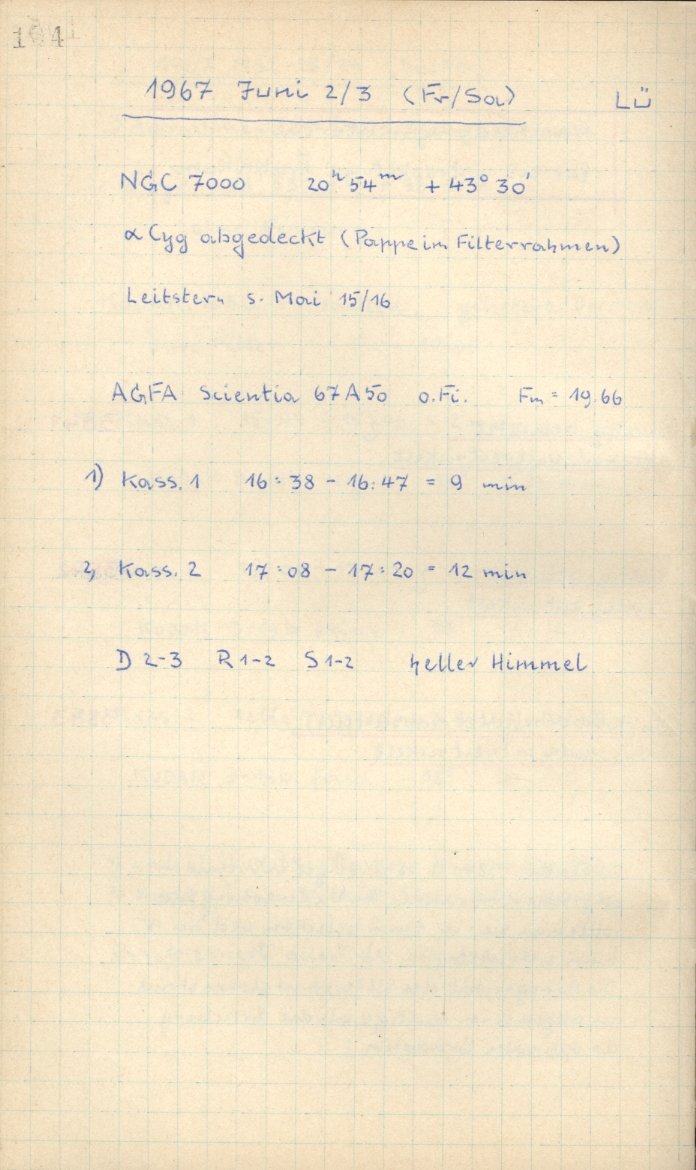 104
1967 Juni 2/3 (Fr/Sa) LÜ
NGC 7000 20ʰ 54ᵐ + 43° 30'
α Cyg abgedeckt (Pappe im Filterrahmen)
Leitstern s. Mai 15/16
AGFA Scientia 67A50 o.Fi. Fm = 19.66
1) Kass. 1 16:38 - 16:47 = 9 min
2) Kass. 2 17:08 - 17:20 = 12 min
D 2-3 R 1-2 S 1-2 heller Himmel